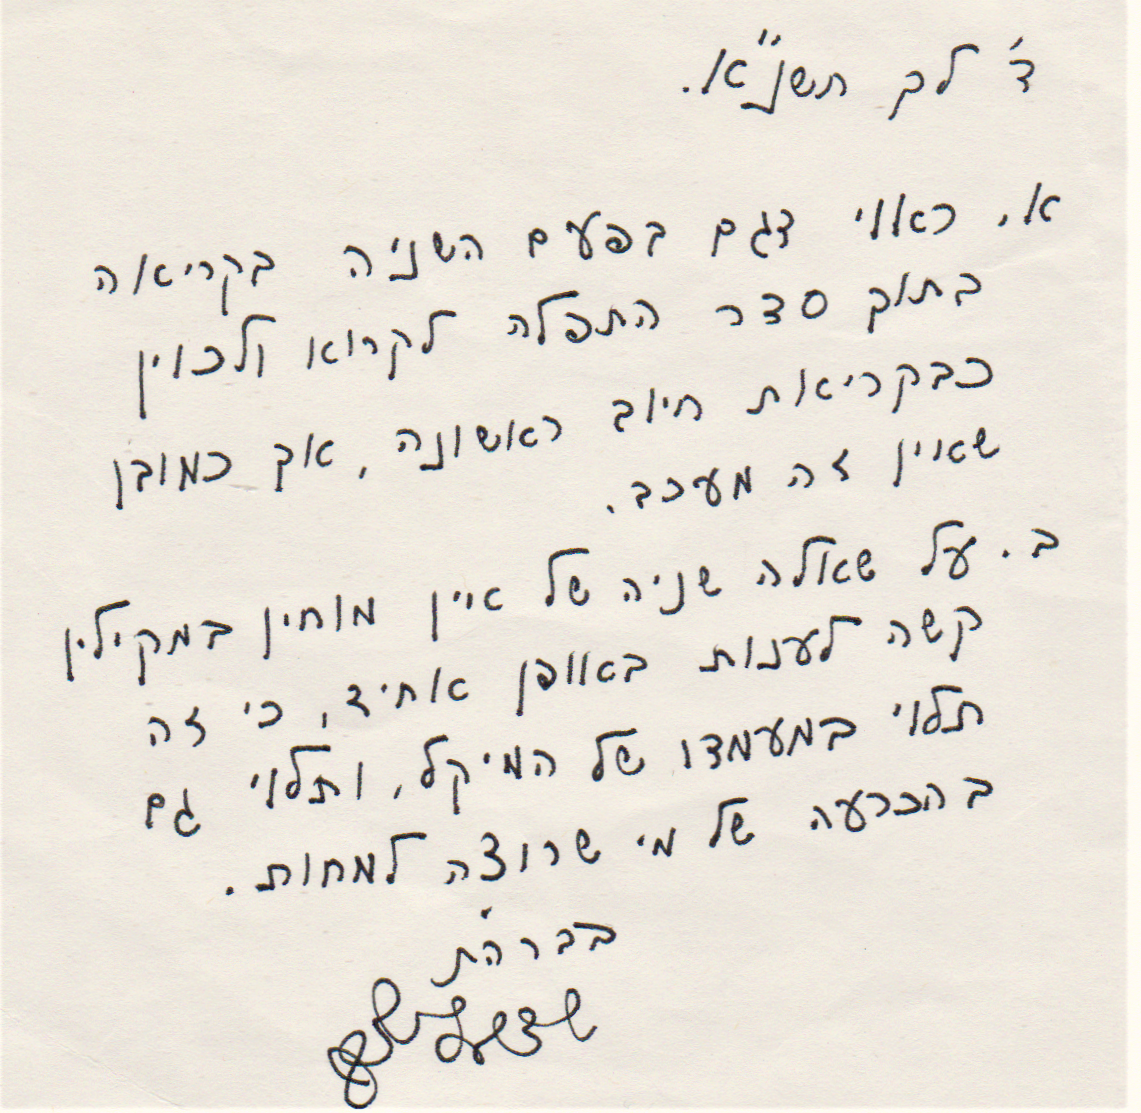 ד' לך תשנ"א.
א. ראוי דגם בפעם השניה בקריאה
בתוך סדר התפלה לקרוא ולכוין
כבקריאת חיוב ראשונה, אך כמובן
שאין זה מעכב.
ב. על שאלה שניה של אין מוחין במקילין
קשה לענות באופן אחיד, כי זה
תלוי במעמדו של המיקל, ותלוי גם
בהכרעה של מי שרוצה למחות.
בברהת'